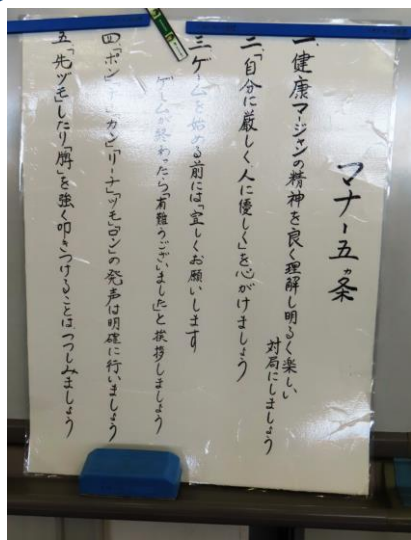 マナー五ヵ条
一、健康マージャンの精神を良く理解し明るく楽しい
対局にしましょう
二、「自分に厳しく、人に優しく」を心がけましょう
三、ゲームを始める前には「宜しくお願いします
ゲームが終わったら「有難うございました」と挨拶しましょう
四、「ポン」「チー」「カン」「リーチ」「ツモ」「ロン」の発声は明確に行いましょう
五、「先ヅモ」したり「牌」を強く叩きつけることは、つつしみましょう